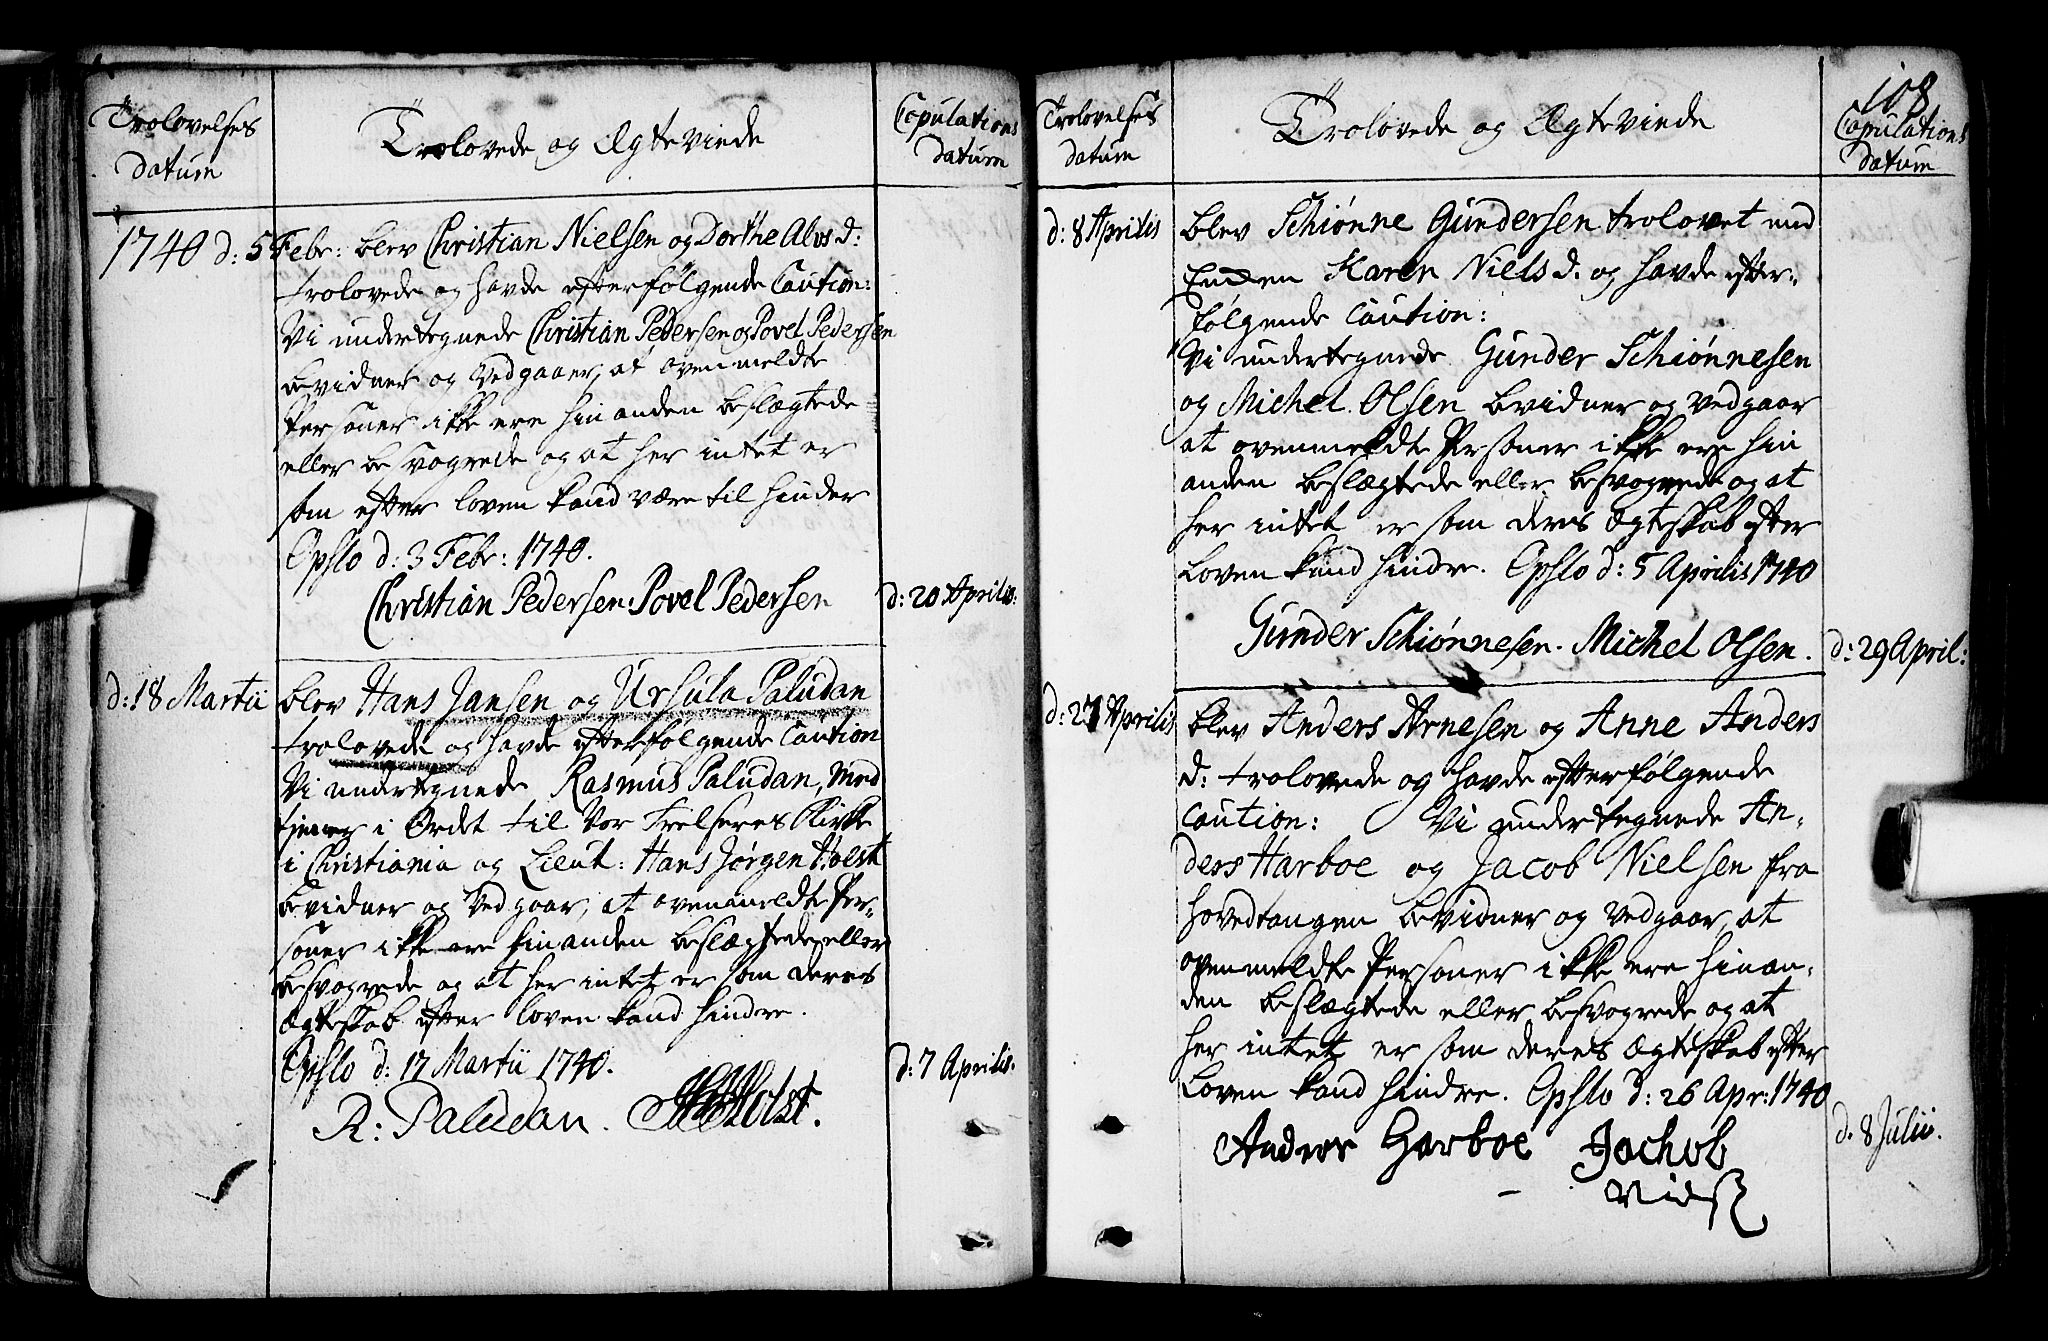 Trolovelses
Datum
Trolovede og Ægteviede
Copulations
Datum
1740 d: 5 Febr: blev Christian Nielsen og Dorthe Alvs d:
trolovede og havde efterfølgende Caution:
Vi undertegnede Christian Pedersen og Povel Pedersen
bevidner og vedgaaer, at ovenmeldte
Personer ikke ere hinanden beslægtede
eller besvogrede og at her intet er
som efter loven kand være til hinder
Opslo d: 3 Febr: 1740.
Christian Pedersen. Povel Pedersen
d: 20 Aprilis:
d: 18 Martii blev Hans Jansen og Ursula Paludan
trolovede og havde efterfølgende Caution
Vi undertegnede Rasmus Paludan, Med
tjener i Ordet til Vor Frelseres Kirke
i Christiania og Lieut: Hans Jørgen Holst
bevidner og vedgaar, at ovenmeldte Per-
soner ikke ere hinanden beslægtede eller
besvogrede og at her intet er som deres
Ægteskab efter loven kand hindre.
Opslo d: 17 Martii 1740.
d: 7 Aprilis.
R: Paludan. Holst.
108
Trolovelses
datum
Trolovede og Ægteviede
Copulations
Datum
d: 8 Aprilis blev Schiønne Gundersen trolovet med
Karen Niels d. og havde efter-
følgende Caution:
Vi undertegnede Gunder Schiønnesen
og Michel Olsen bevidner og vedgaar
at ovenmeldte Personer ikke ere hin
anden beslægtede eller besvogrede og at
her intet er som deres Ægteskab efter
Loven kand hindre. Opslo d: 5 Aprilis 1740
Gunder Schiønnesen. Michel Olsen.
d: 29 April:
d: 27 Aprilis blev Anders Arnesen og Anne Anders
d: trolovede og havde efterfølgende
Caution: Vi undertegnede An-
ders Harboe og Jacob Nielsen fra
Hovedtangen bevidner og vedgaar, at
ovenmeldte Personer ikke ere hinan-
den beslægtede eller besvogrede og at
her intet er som deres Ægteskab efter
Loven kand hindre. Opslo d: 26 Apr: 1740
d. 8 Julii.
Anders Harboe Jachob